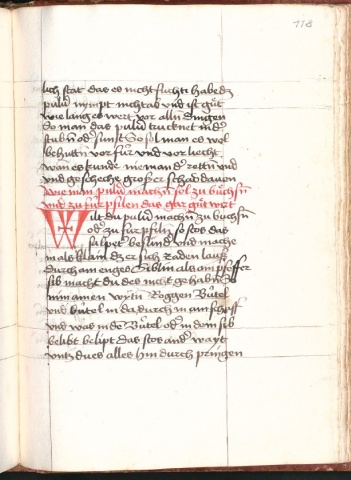 118
lich stat das es nicht fluchti habe dz
puluer nympt nicht ab vnd ist gůt
wie lang es wert vor allen dingen
So man das puluer trucknet in der
stuben oder sunst So sol man es wol
behuten vor fur vnd vor liecht
wan es kunde nieman der retten vnd
vnd gescheche grosser schad dauon
Wie man puluer machen sol zu buchsen
vnd zu fur pfilen das gar gůt wert
Wilt du puluer machen zu buchsen
oder zu fur pfilen so stos das
salpeter besunder vnd mache
in als klain dz er sich Raden lauss
durch ain enges Siblin als ain pfeffer
sib macht du des nicht gehaben So
nim ainen wyten Roggen Bütel
vnd bütel in da durch in ain scheff
vnd was in de Bütel oder in dem sib
belibt belipt das stos ander wayt
vntz du es alles hin durch pringen